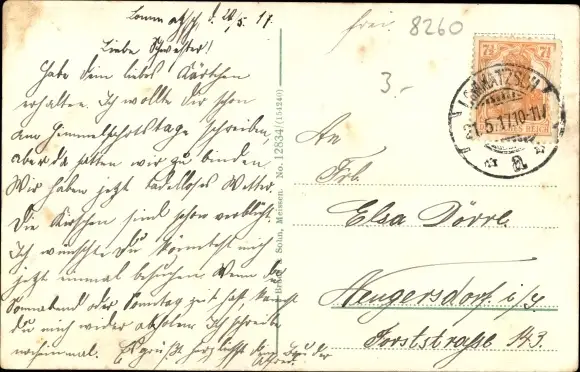 Lommatzsch, d. 20/5. 17.
Liebe Schwester!
Habe Dein liebes Kärtchen
erhalten. Ich wollte Dir schon
am Himmelfahrtstage schreiben,
aber da hatten wir zu binden.
Wir haben jetzt tadelloses Wetter.
Die Kirschen sind schon verblüht.
Ich wünschte, Du könntest mich
jetzt einmal besuchen. Wenn Du
Sonnabend oder Sonntag zeit hast, kannst
du mich wieder abholen. Ich schreibe
nocheinmal. Es grüßt herzlichst dein Bruder
frei.
8260
3.-
7½ 7½
LOMMATZSCH
21.5.17.10-11V
An
Frl.
Elsa Dörrl.
Neugersdorf i/S.
Forststraße 43.
& Sohn, Meissen. No. 12834 (154240)